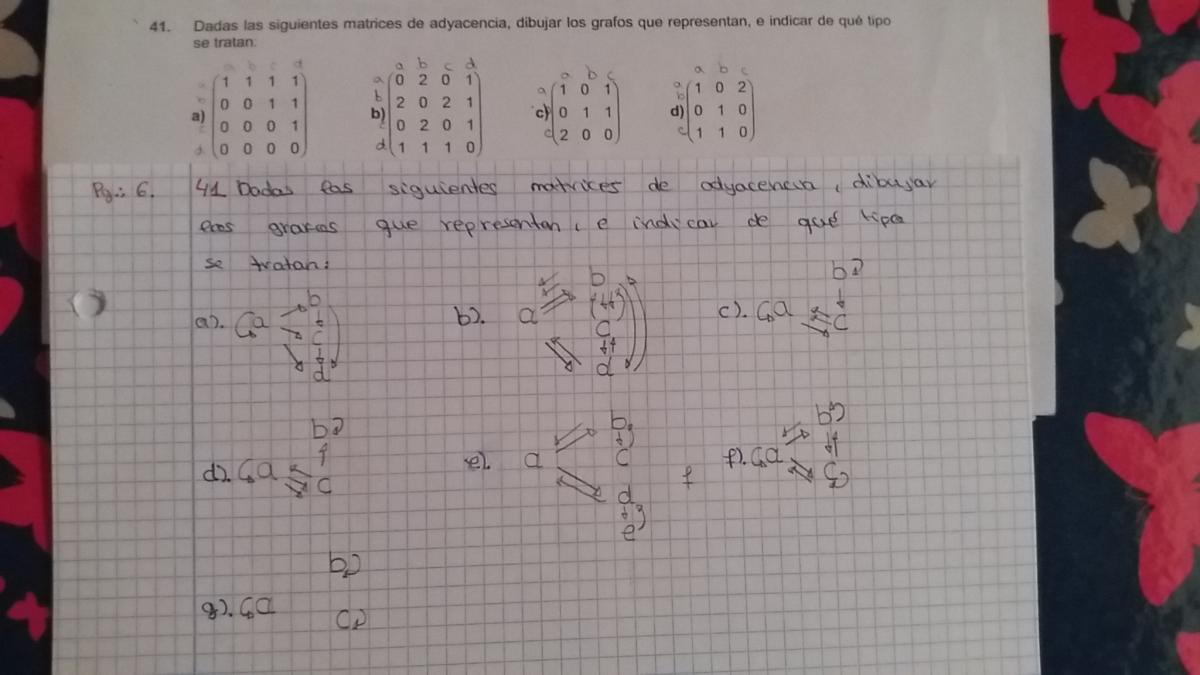 41. Dadas las siguientes matrices de adyacencia, dibujar los grafos que representan, e indicar de qué tipo
se tratan:
a b c d
a b c d
a b c
a b c
a 1 1 1 1
b 0 0 1 1
a) c 0 0 0 1
d 0 0 0 0
a 0 2 0 1
b 2 0 2 1
b) c 0 2 0 1
d 1 1 1 0
a 1 0 1
c) 0 1 1
c 2 0 0
a 1 0 2
b
d) 0 1 0
c 1 1 0
Pg.: 6. 41 Dadas las siguientes matrices de adyacencia, dibujar
los grafos que representan, e indicar de qué tipo
se tratan:
a). a b c d
b). a b c d
c). a b c
d). a b c
e). a b c d e
f
f). a b c
g). a b c